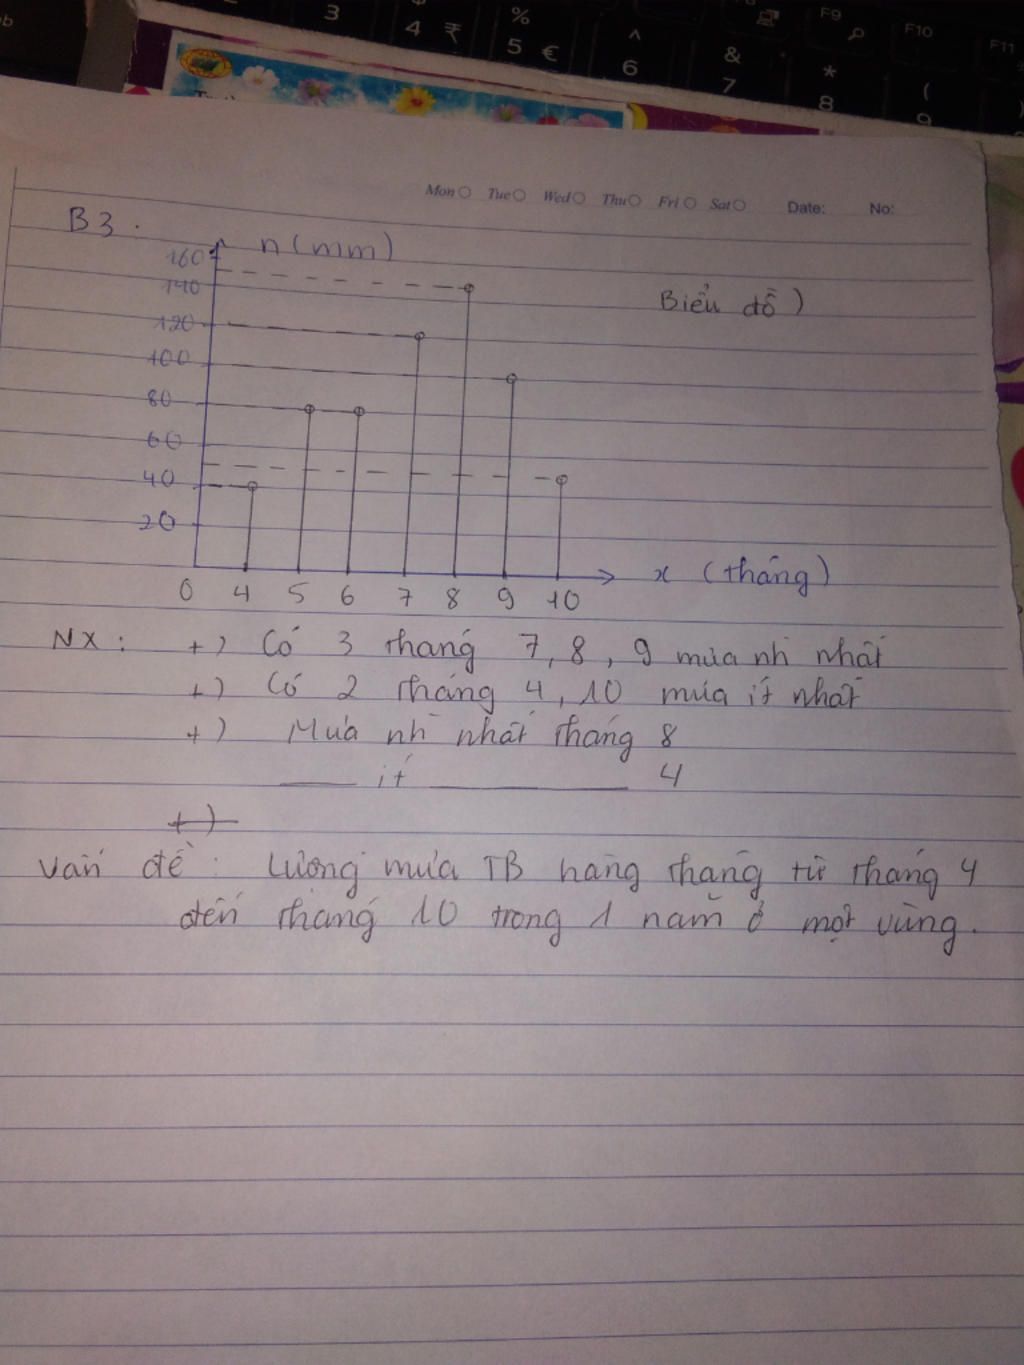 3
4 ₹
%
5 €
^
6
&
7
*
8
F9
(
9
F10
F11
Mon Tue Wed Thu Fri Sat Date: No:
B3.
n (mm)
160
140
Biểu đồ)
120
100
80
60
40
20
0 4 5 6 7 8 9 10
x (tháng)
NX: +) Có 3 tháng 7, 8, 9 mưa nh nhất
+) Có 2 tháng 4, 10 mưa ít nhất
+) Mưa nh nhất tháng 8
ít 4
+)
Vấn đề: Lượng mưa TB hàng tháng từ tháng 4
đến tháng 10 trong 1 năm ở một vùng.